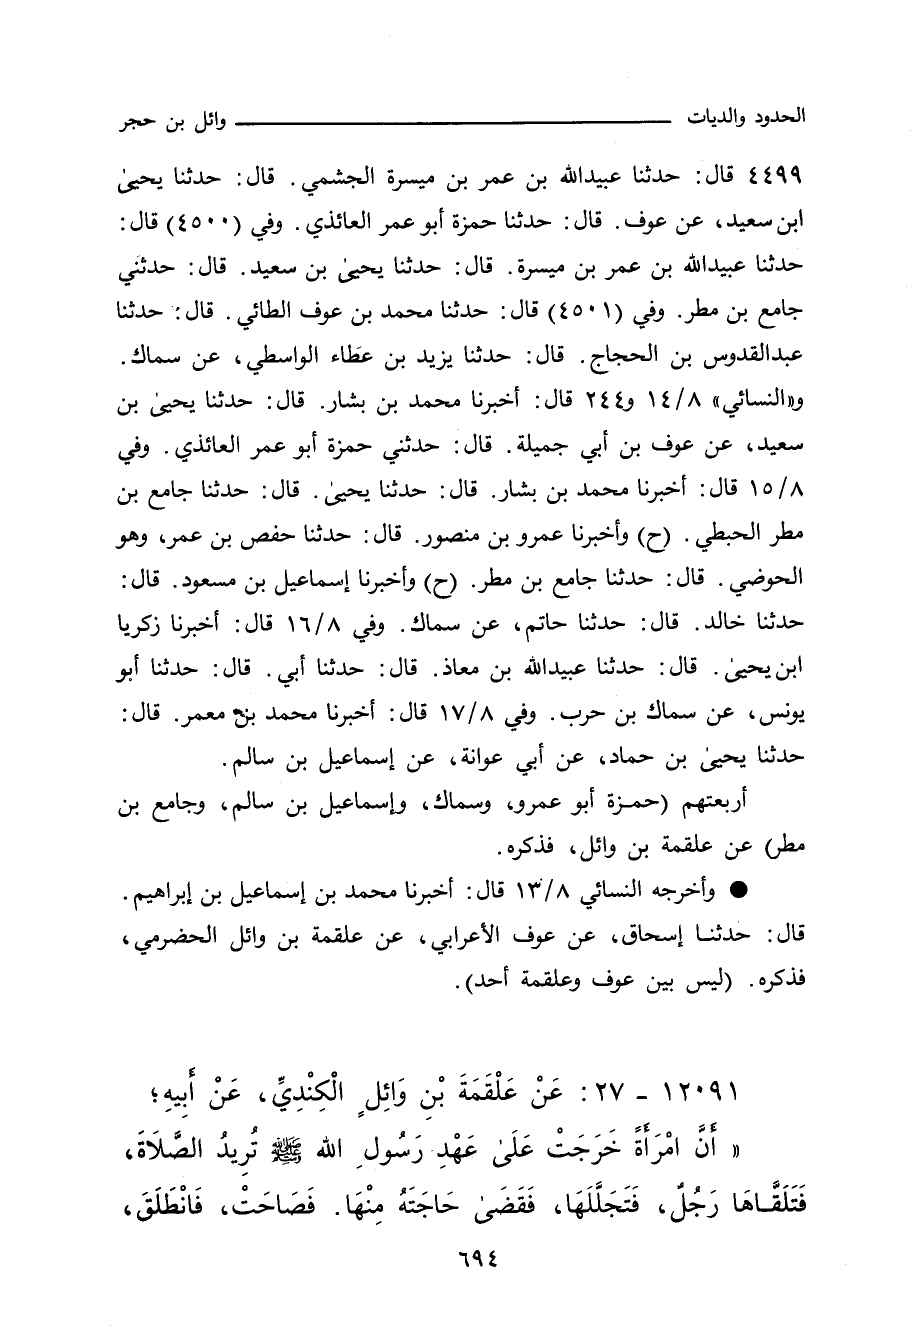 الحدود والديات ــــــــــــــــــــــــــــــــــــــــ وائل بن حجر
٤٤٩٩ قال: حدثنا عبيدالله بن عمر بن ميسرة الجشمي. قال: حدثنا يحيىٰ
ابن سعيد، عن عوف. قال: حدثنا حمزة أبو عمر العائذي. وفي (٤٥٠٠) قال:
حدثنا عبيدالله بن عمر بن ميسرة. قال: حدثنا يحيىٰ بن سعيد. قال: حدثني
جامع بن مطر. وفي (٤٥٠١) قال: حدثنا محمد بن عوف الطائي. قال: حدثنا
عبدالقدوس بن الحجاج. قال: حدثنا يزيد بن عطاء الواسطي، عن سماك.
و«النسائي» ١٤/٨ و٢٤٤ قال: أخبرنا محمد بن بشار. قال: حدثنا يحيىٰ بن
سعيد، عن عوف بن أبي جميلة. قال: حدثني حمزة أبو عمر العائذي. وفي
١٥/٨ قال: أخبرنا محمد بن بشار. قال: حدثنا يحيىٰ. قال: حدثنا جامع بن
مطر الحبطي. (ح) وأخبرنا عمرو بن منصور. قال: حدثنا حفص بن عمر، وهو
الحوضي. قال: حدثنا جامع بن مطر. (ح) وأخبرنا إسماعيل بن مسعود. قال:
حدثنا خالد. قال: حدثنا حاتم، عن سماك. وفي ١٦/٨ قال: أخبرنا زكريا
ابن يحيىٰ. قال: حدثنا عبيدالله بن معاذ. قال: حدثنا أبي. قال: حدثنا أبو
يونس، عن سماك بن حرب. وفي ١٧/٨ قال: أخبرنا محمد بن معمر. قال:
حدثنا يحيىٰ بن حماد، عن أبي عوانة، عن إسماعيل بن سالم.
أربعتهم (حمزة أبو عمرو، وسماك، وإسماعيل بن سالم، وجامع بن
مطر) عن علقمة بن وائل، فذكره.
● وأخرجه النسائي ١٣/٨ قال: أخبرنا محمد بن إسماعيل بن إبراهيم.
قال: حدثنا إسحاق، عن عوف الأعرابي، عن علقمة بن وائل الحضرمي،
فذكره. (ليس بين عوف وعلقمة أحد).
١٢٠٩١ - ٢٧: عَنْ عَلْقَمَةَ بْنِ وَائِلٍ الْكِنْدِيِّ، عَنْ أَبِيهِ؛
« أَنَّ امْرَأَةً خَرَجَتْ عَلَىٰ عَهْدِ رَسُولِ الله ﷺ تُرِيدُ الصَّلَاةَ،
فَتَلَقَّاهَا رَجُلٌ، فَتَجَلَّلَهَا، فَقَضَىٰ حَاجَتَهُ مِنْهَا. فَصَاحَتْ، فَانْطَلَقَ،
٦٩٤